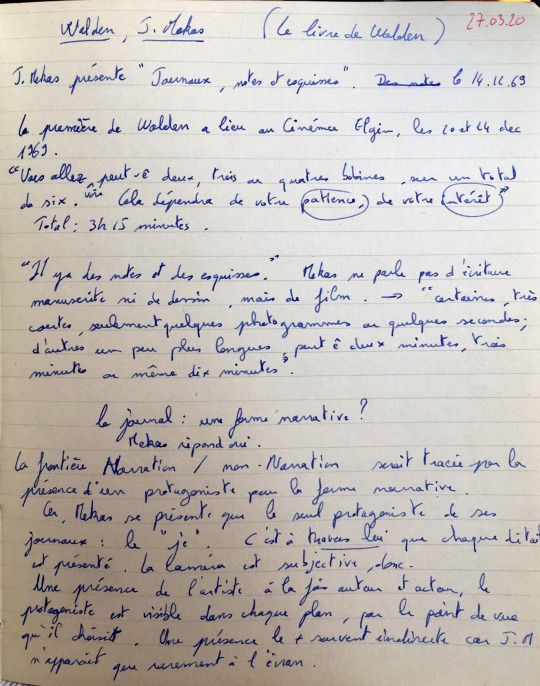 Walden, J. Mekas (Le livre de Walden) 27.03.20
J. Mekas présente "Journaux, notes et esquisses". Des notes le 14.12.69
La première de Walden a lieu au Cinéma Elgin, les 20 et 24 dec
1969.
"Vous allez peut-ê deux, trois ou quatres bobines, sur un total
de six. voir Cela dépendra de votre patience, de votre intérêt"
Total : 3h 15 minutes.
"Il y a des notes et des esquisses." Mekas ne parle pas d'écriture
manuscrite ni de dessin, mais de film. → "certaines, très
courtes, seulement quelques photogrammes ou quelques secondes;
d'autres un peu plus longues, peut ê deux minutes, trois
minutes ou même dix minutes".
Le journal : une forme narrative ?
Mekas répond oui.
La frontière Narration / non-Narration serait tracée par la
présence d'un protagoniste pour la forme narrative.
Or, Mekas se présente que le seul protagoniste de ses
journaux : le "je". C'est à travers lui que chaque détail
est présenté. La caméra est subjective, donc.
Une présence de l'artiste à la fois auteur et acteur, le
protagoniste est visible dans chaque plan, par le point de vue
qu'il choisit. Une présence le + souvent indirecte car J.M
n'apparaît que rarement à l'écran.